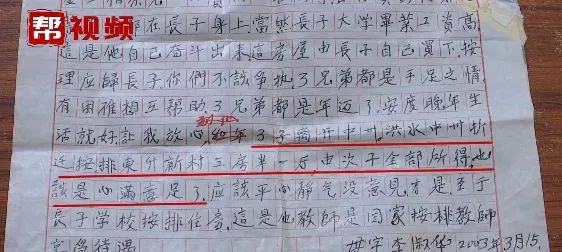 帮视频
都在長子身上,當然長子大学畢業工資高,
這是他自己奋斗出來這房屋由長子自己買下,按
理应歸長子,你們不該争执,3兄弟都是手足之情
有困难相互帮助3兄弟都是年迈了,安度晚年生
活就好讓我放心,
3子離开中州,洪水中州折
迁按排東升新村三房半一方,由次子全部所得,也
該是心滿意足了,应該平心静气没意見才是至于
長子学校按排住房,這是他教師是国家按排教師
2003年3月15